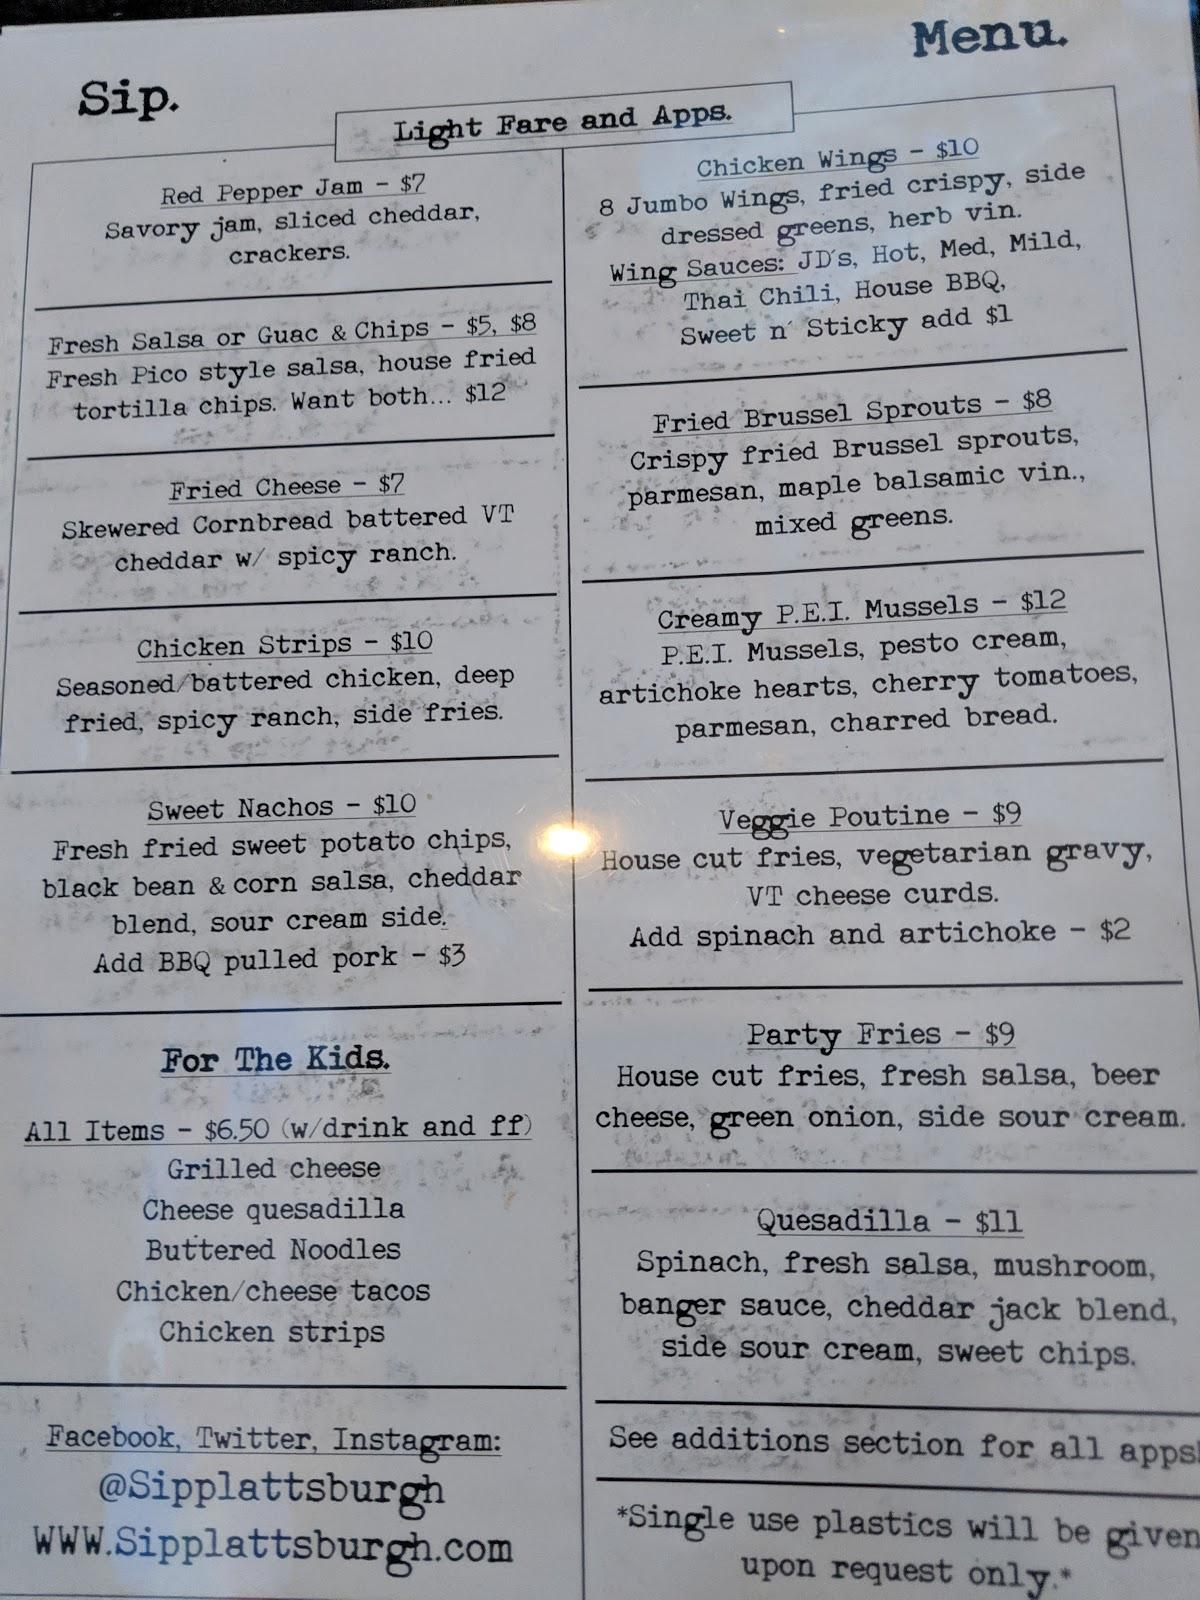 Sip.
Menu.
Light Fare and Apps.
Red Pepper Jam - $7
Savory jam, sliced cheddar,
crackers.
Fresh Salsa or Guac & Chips - $5, $8
Fresh Pico style salsa, house fried
tortilla chips. Want both... $12
Fried Cheese - $7
Skewered Cornbread battered VT
cheddar w/ spicy ranch.
Chicken Strips - $10
Seasoned/battered chicken, deep
fried, spicy ranch, side fries.
Sweet Nachos - $10
Fresh fried sweet potato chips,
black bean & corn salsa, cheddar
blend, sour cream side.
Add BBQ pulled pork - $3
For The Kids.
All Items - $6.50 (w/drink and ff)
Grilled cheese
Cheese quesadilla
Buttered Noodles
Chicken/cheese tacos
Chicken strips
Facebook, Twitter, Instagram:
@Sipplattsburgh
WWW.Sipplattsburgh.com
Chicken Wings - $10
8 Jumbo Wings, fried crispy, side
dressed greens, herb vin.
Wing Sauces: JD's, Hot, Med, Mild,
Thai Chili, House BBQ,
Sweet n' Sticky add $1
Fried Brussel Sprouts - $8
Crispy fried Brussel sprouts,
parmesan, maple balsamic vin.,
mixed greens.
Creamy P.E.I. Mussels - $12
P.E.I. Mussels, pesto cream,
artichoke hearts, cherry tomatoes,
parmesan, charred bread.
Veggie Poutine - $9
House cut fries, vegetarian gravy,
VT cheese curds.
Add spinach and artichoke - $2
Party Fries - $9
House cut fries, fresh salsa, beer
cheese, green onion, side sour cream.
Quesadilla - $11
Spinach, fresh salsa, mushroom,
banger sauce, cheddar jack blend,
side sour cream, sweet chips.
See additions section for all apps!
*Single use plastics will be given
upon request only.*